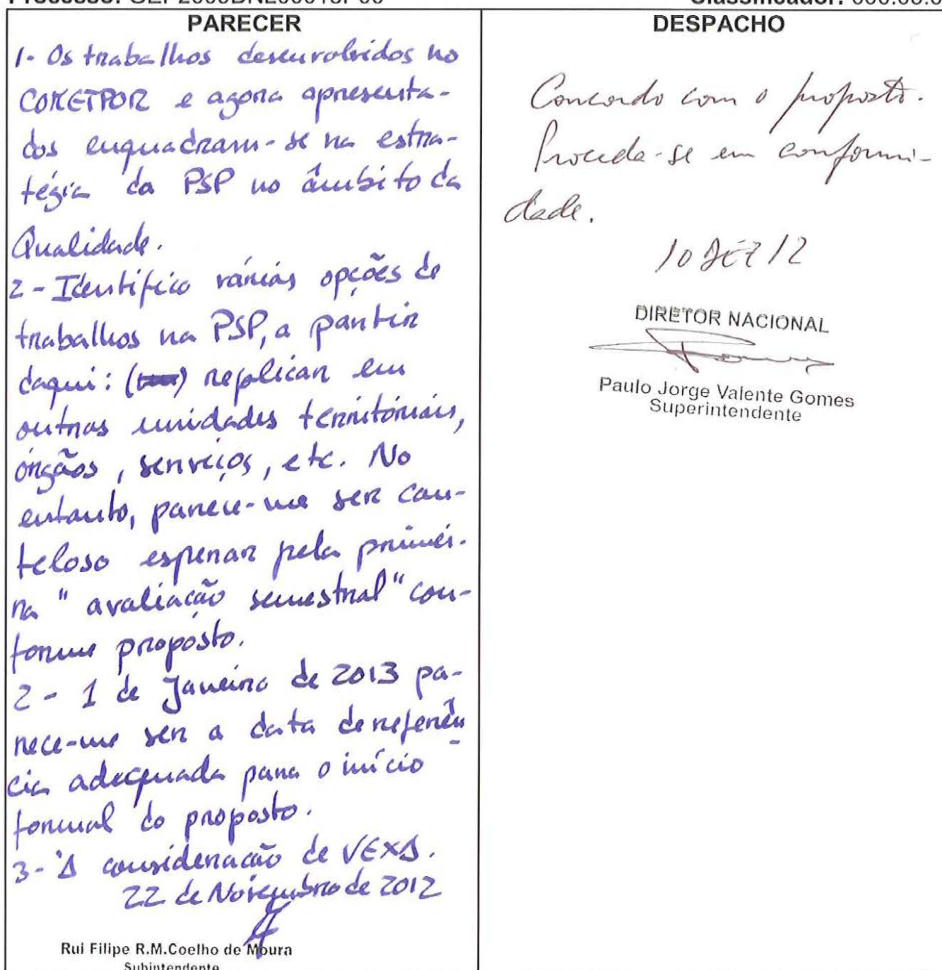 PARECER
1- Os trabalhos desenvolvidos no
COMETPOR e agora apresenta-
dos enquadram-se na estra-
tégia da PSP no âmbito da
Qualidade.
2 - Identifico várias opções de
trabalhos na PSP, a partir
daqui: replicar em
outras unidades territoriais,
órgãos, serviços, etc. No
entanto, parece-me ser cau-
teloso esperar pela primei-
ra "avaliação semestral" con-
forme proposto.
2 - 1 de Janeiro de 2013 pa-
rece-me ser a data de referên
cia adequada para o início
formal do proposto.
3 - À consideração de VEXA.
22 de Novembro de 2012
Rui Filipe R.M.Coelho de Moura
Subintendente
DESPACHO
Concordo com o proposto.
Proceda-se em conformi-
dade.
10 DEZ 12
DIRETOR NACIONAL
Paulo Jorge Valente Gomes
Superintendente